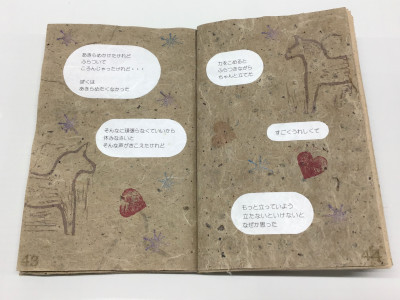 あきらめかけたけれど
ふらついて
ころんじゃったけれど・・・
ぼくは
あきらめたくなかった
そんなに頑張らなくていいから
休みなさいと
そんな声がきこえたけれど
43
力をこめると
ふらつきながら
ちゃんと立てた
すごくうれしくて
もっと立っていよう
立たないといけないと
なぜか思った
44